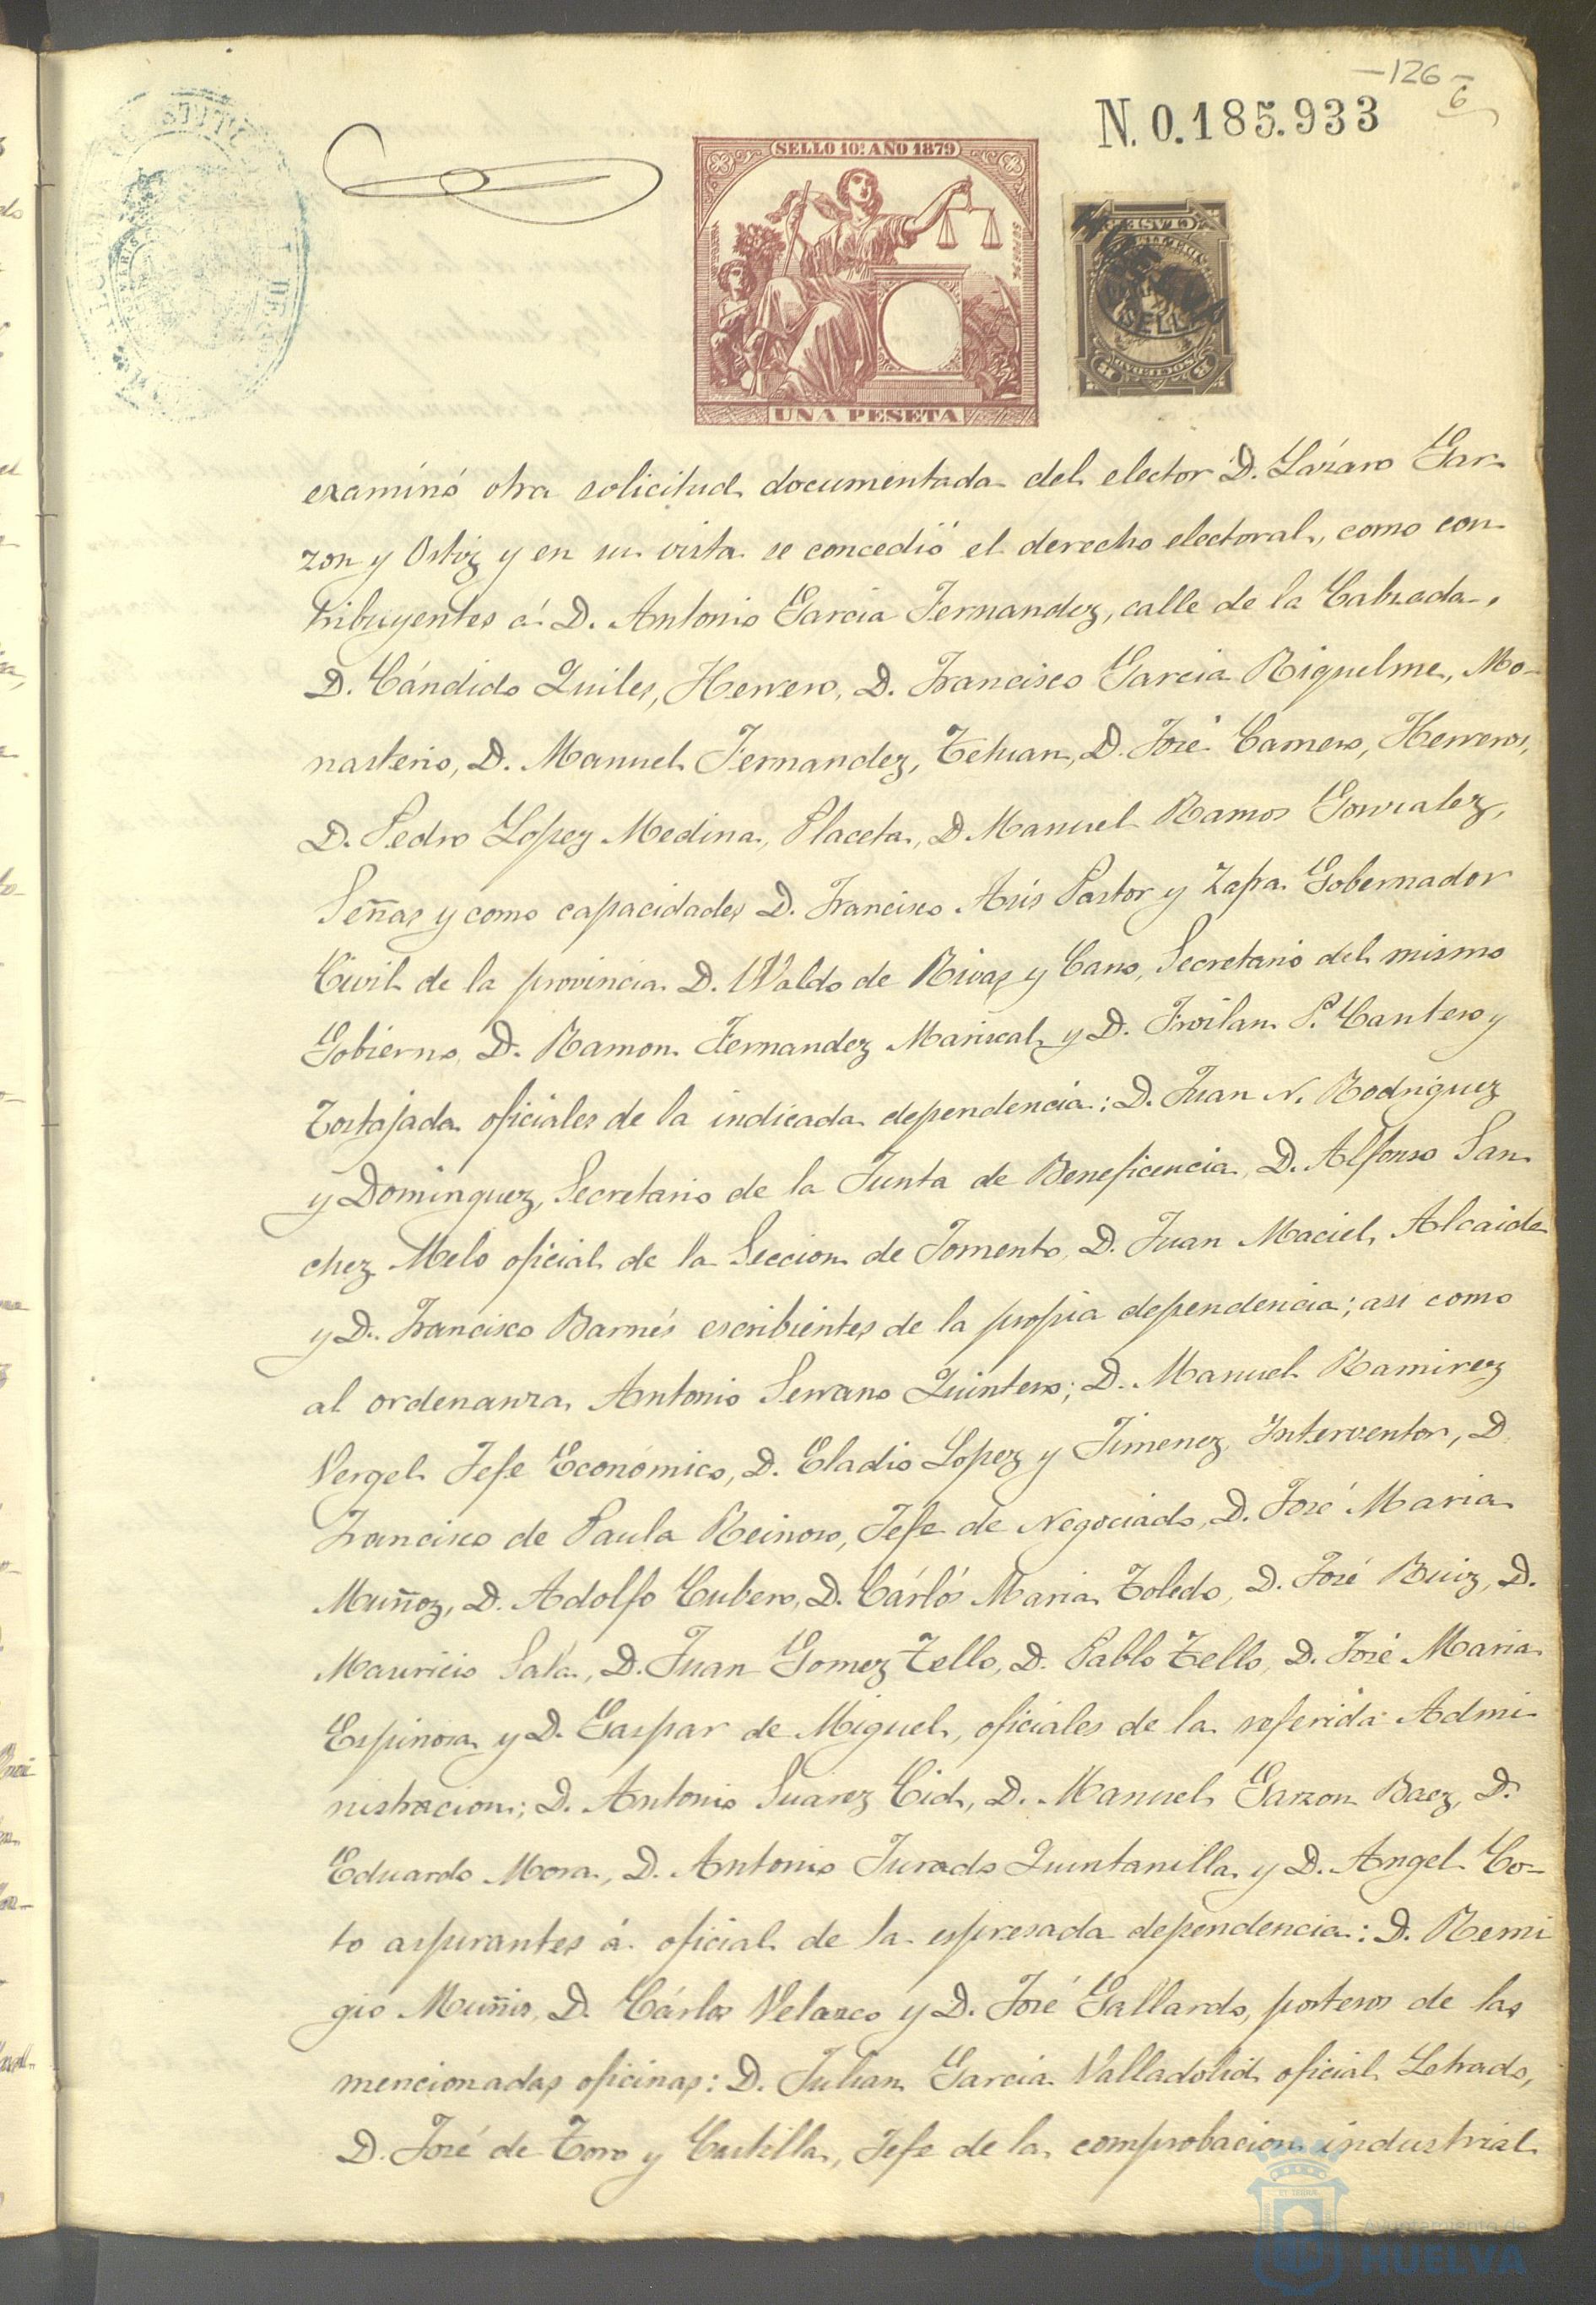 -126-
6
N. 0.185.933
SELLO 10º AÑO 1879
UNA PESETA
examinó otra solicitud documentada del elector D. Lázaro Gar-
zon y Ortiz y en su vista se concedió el derecho electoral, como con-
tribuyentes á D. Antonio Garcia Fernandez, calle de la Calzada,
D. Cándido Quiles, Herrero, D. Francisco Garcia Riquelme, Mo-
nasterio, D. Manuel Fernandez, Tetuan, D. José Carnero, Herreros,
D. Pedro Lopez Medina, Placeta, D. Manuel Ramos Gonzalez,
Señas y como capacidades D. Francisco Asis Pastor y Zapa Gobernador
Civil de la provincia D. Waldo de Rivas y Cano, Secretario del mismo
Gobierno, D. Ramon Fernandez Mariscal y D. Froilan P. Cantero y
Tortajada oficiales de la indicada dependencia: D. Juan N. Rodriguez
y Dominguez, Secretario de la Junta de Beneficencia, D. Alfonso San-
chez Melo oficial de la Seccion de Fomento, D. Juan Maciel, Alcaide
y D. Francisco Barnés escribientes de la propia dependencia; asi como
al ordenanza Antonio Serrano Quintero; D. Manuel Ramirez
Vergel Jefe Económico, D. Eladio Lopez y Jimenez Interventor, D.
Francisco de Paula Reinoso, Jefe de Negociado, D. José Maria
Muñoz, D. Adolfo Cubero, D. Cárlós Maria Toledo, D. José Ruiz, D.
Mauricio Sala, D. Juan Gomez Tello, D. Pablo Tello, D. José Maria
Espinosa y D. Gaspar de Miguel, oficiales de la referida Admi-
nistracion; D. Antonio Suarez Cid, D. Manuel Garzon Baez, D.
Eduardo Mora, D. Antonio Jurado Quintanilla y D. Angel Co-
to aspirantes á oficial de la espresada dependencia: D. Remi-
gio Muñiz, D. Cárlos Velazco y D. José Gallardo, porteros de las
mencionadas oficinas: D. Julian Garcia Valladolid oficial Letrado,
D. José de Toro y Castilla, Jefe de la comprobacion industrial
Ayuntamiento de
HUELVA